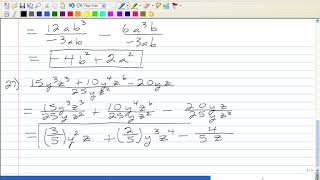 = 12ab³/-3ab - 6a³b/-3ab
= -4b² + 2a²
27) 15y³z³ + 10y⁴z⁶ - 20yz / 25yz²
= 15y³z³/25yz² + 10y⁴z⁶/25yz² - 20yz/25yz²
= (3/5)y²z + (2/5)y³z⁴ - 4/5z